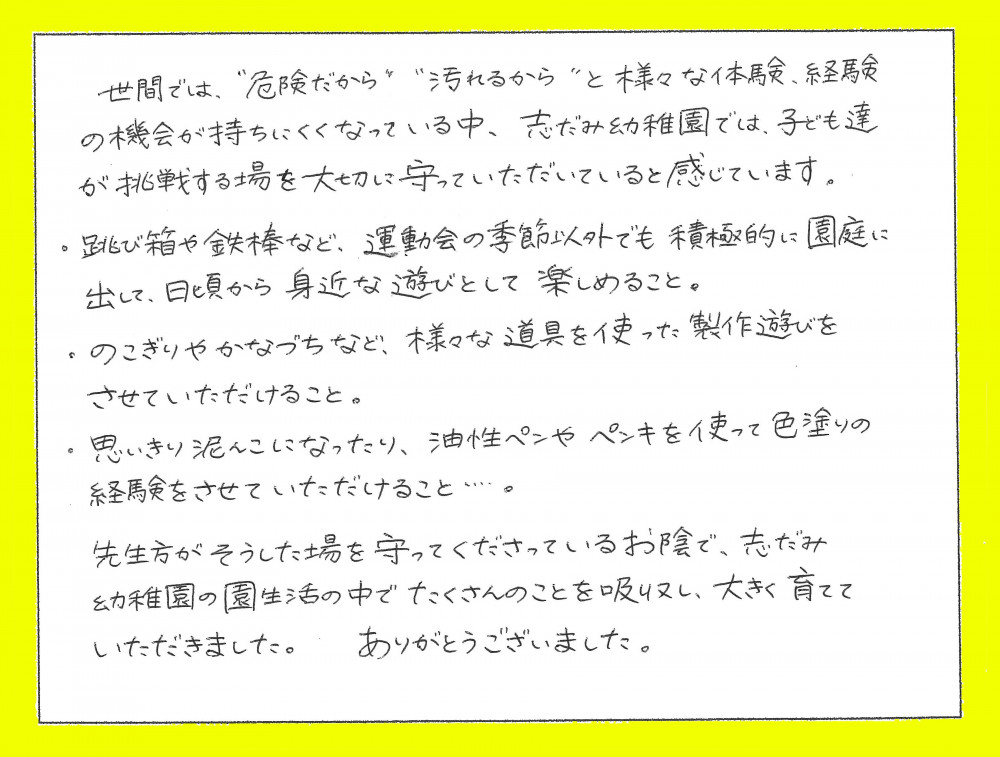 世間では、“危険だから” “汚れるから”と様々な体験、経験
の機会が持ちにくくなっている中、志だみ幼稚園では、子ども達
が挑戦する場を大切に守っていただいていると感じています。
・跳び箱や鉄棒など、運動会の季節以外でも積極的に園庭に
出して、日頃から身近な遊びとして楽しめること。
・のこぎりやかなづちなど、様々な道具を使った製作遊びを
させていただけること。
・思いきり泥んこになったり、油性ペンやペンキを使って色塗りの
経験をさせていただけること…。
先生方がそうした場を守ってくださっているお陰で、志だみ
幼稚園の園生活の中でたくさんのことを吸収し、大きく育てて
いただきました。 ありがとうございました。